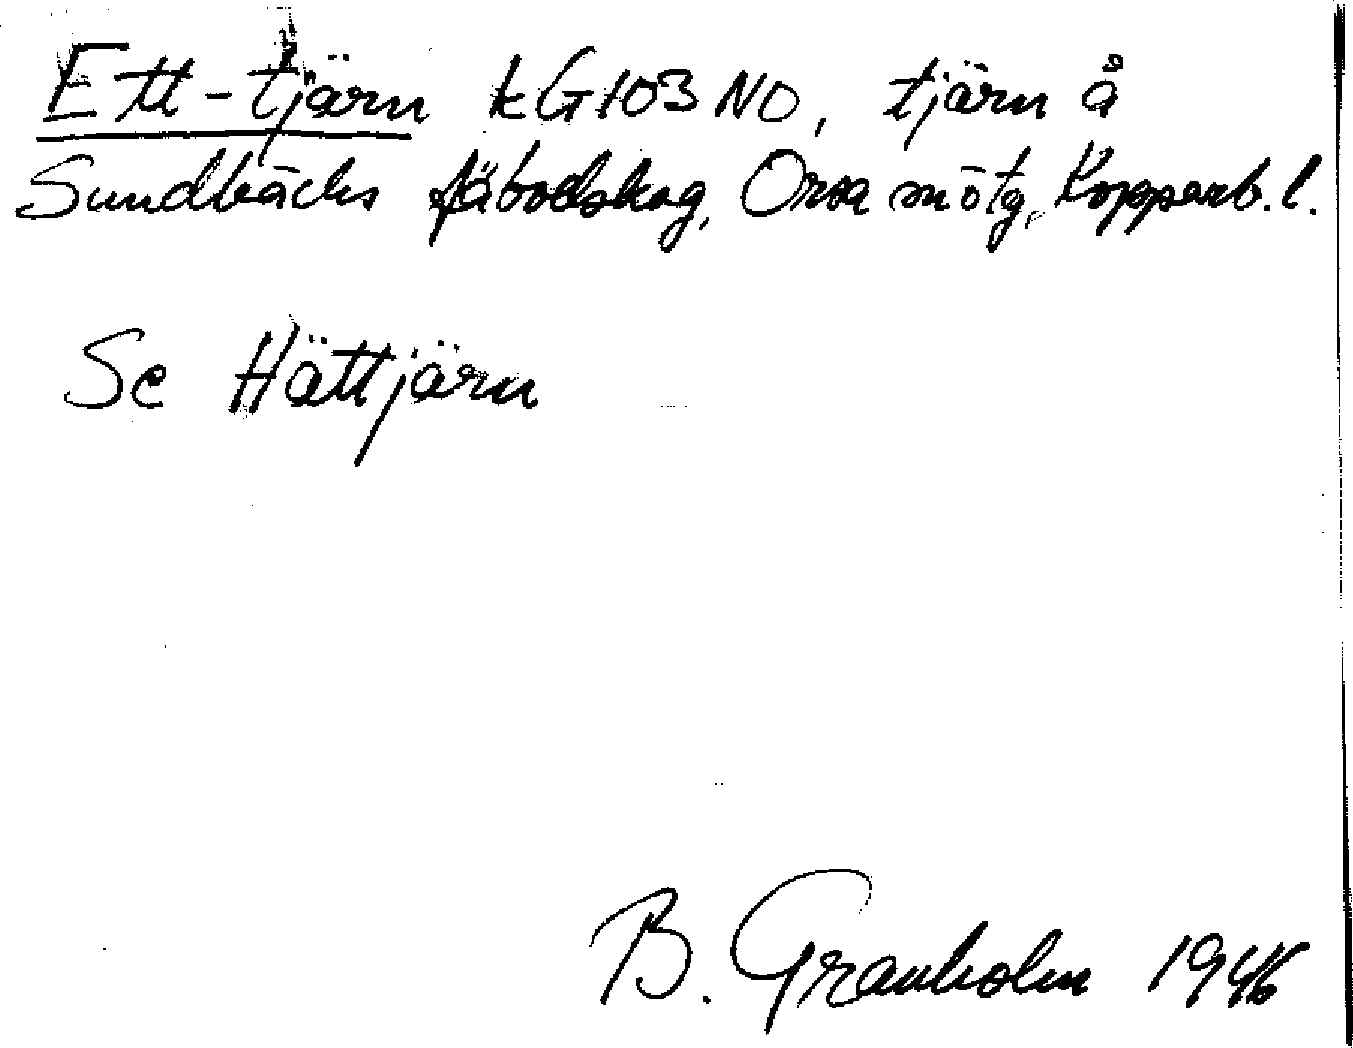 Ett-tjärn kG103NO, tjärn å
Sundbäcks fäbodskog, Orsa mötg, Kopparb. l.
Se Hättjärn
B. Granholm 1946